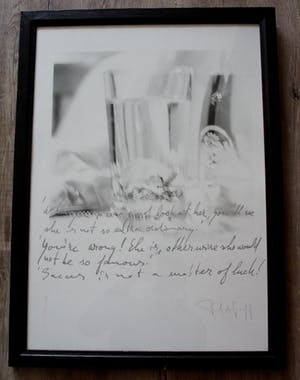 look at her, you'll see
she is not so extraordinary.'
'You're wrong! She is, otherwise she would
not be so famous.'
'Success is not a matter of luck!